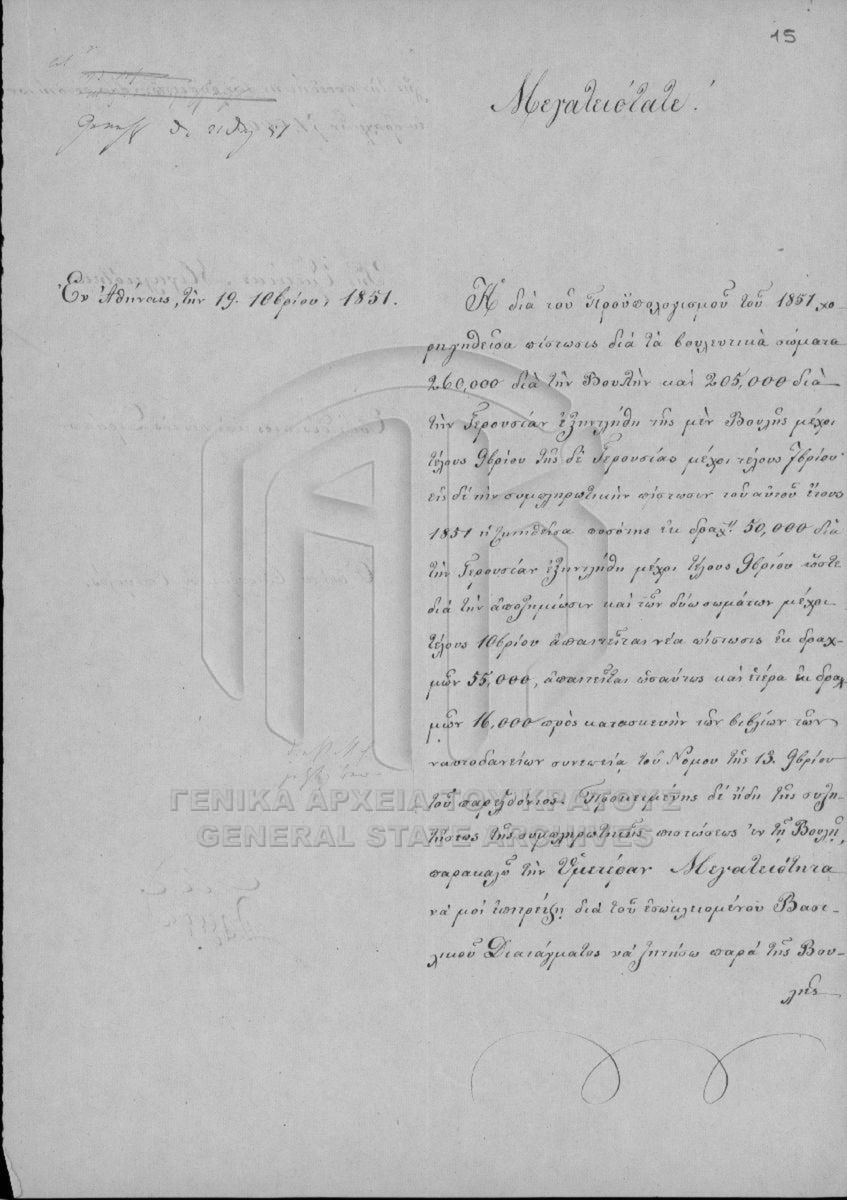 15
Μεγαλειότατε!
Ἐν Ἀθήναις, τὴν 19. 10βρίου, 1851.
Ἡ διὰ τοῦ Προϋπολογισμοῦ τοῦ 1851 χο-
ρηγηθεῖσα πίστωσις διὰ τὰ βουλευτικὰ σώματα
260,000 διὰ τὴν Βουλὴν καὶ 205,000 διὰ
τὴν Γερουσίαν ἐξηντλήθη τῆς μὲν Βουλῆς μέχρι
τέλους 9βρίου τῆς δὲ Γερουσίας μέχρι τέλους 7βρίου·
εἰς δὲ τὴν συμπληρωτικὴν πίστωσιν τοῦ αὐτοῦ ἔτους
1851 ἡ ζητηθεῖσα ποσότης ἐκ δραχ. 50,000 διὰ
τὴν Γερουσίαν ἐξηντλήθη μέχρι τέλους 9βρίου ὥστε
διὰ τὴν ἀποζημίωσιν καὶ τῶν δύω σωμάτων μέχρι
τέλους 10βρίου ἀπαιτεῖται νέα πίστωσις ἐκ δραχ-
μῶν 55,000, ἀπαιτεῖται ὡσαύτως καὶ ἑτέρα ἐκ δραχ-
μῶν 16,000 πρὸς κατασκευὴν τῶν βιβλίων τῶν
ναυτοδανείων συνεπείᾳ τοῦ Νόμου τῆς 13. 9βρίου
τοῦ παρελθόντος. Προκειμένης δὲ ἤδη τῆς συζη-
τήσεως τῆς συμπληρωτικῆς πιστώσεως ἐν τῇ Βουλῇ,
παρακαλῶ τὴν Ὑμετέραν Μεγαλειότητα
νὰ μοὶ ἐπιτρέψῃ διὰ τοῦ ἐσωκλεισμένου Βασι-
λικοῦ Διατάγματος νὰ ζητήσω παρὰ τῆς Βου-
λῆς
ΓΕΝΙΚΑ ΑΡΧΕΙΑ ΤΟΥ ΚΡΑΤΟΥΣ
GENERAL STATE ARCHIVES